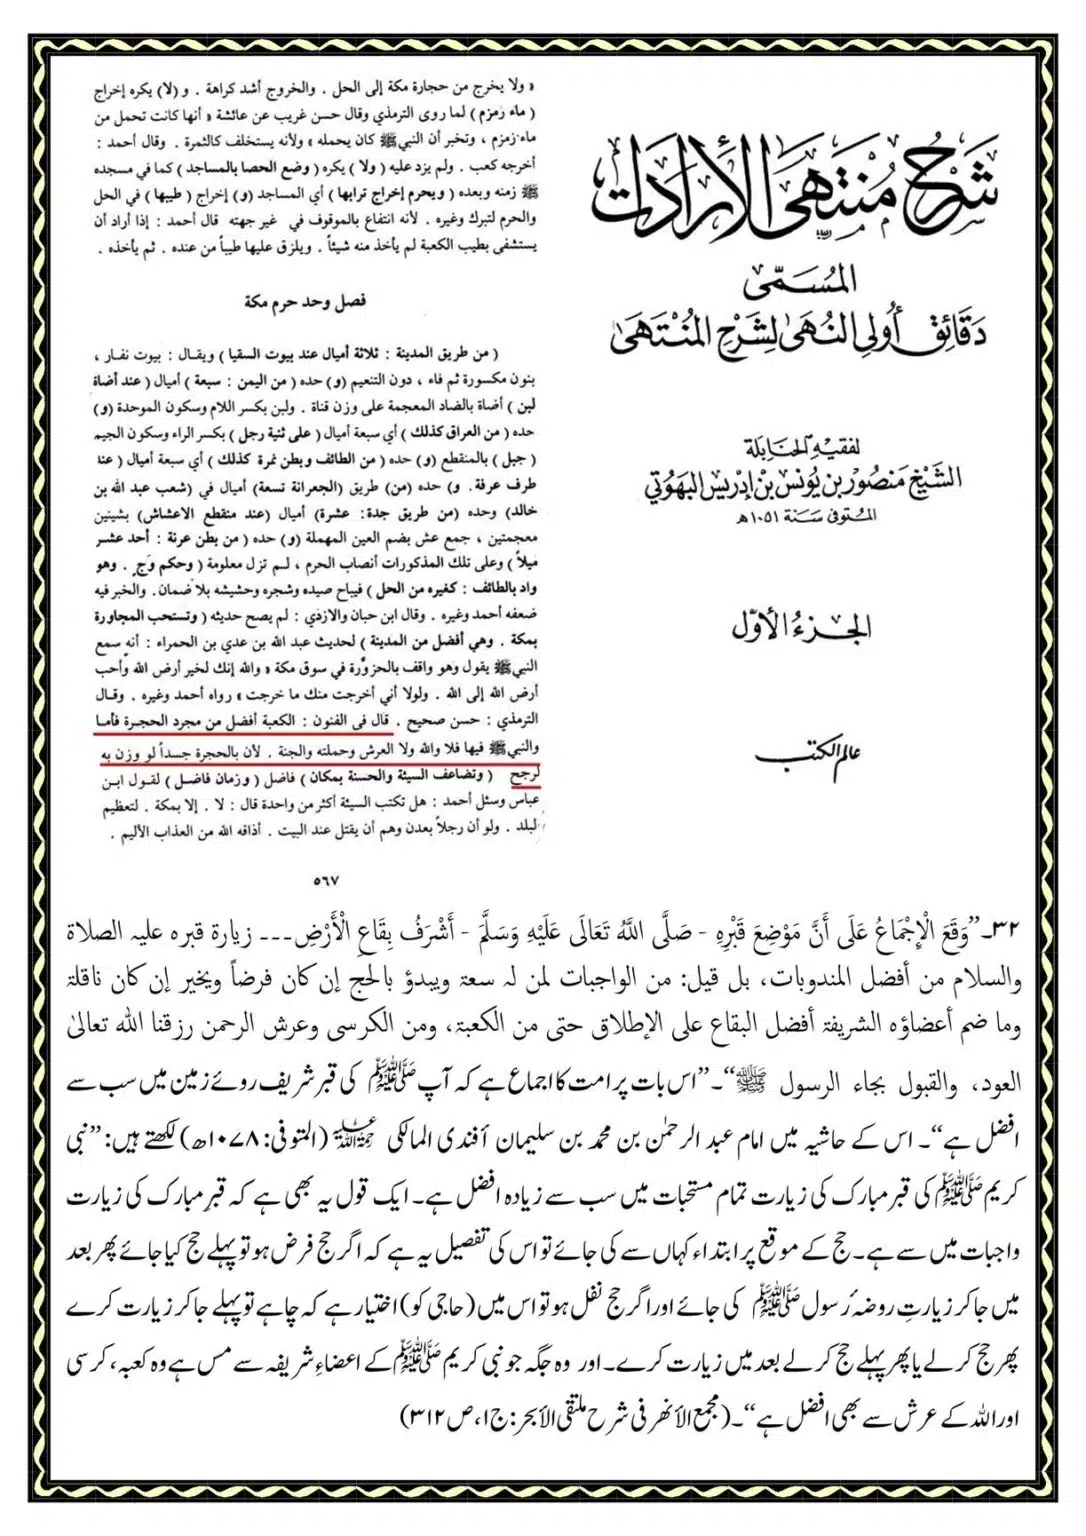 « ولا يخرج من حجارة مكة إلى الحل . والخروج أشد كراهة . و (لا) يكره إخراج
( ماء زمزم ) لما روى الترمذي وقال حسن غريب عن عائشة « أنها كانت تحمل من
ماء زمزم ، وتخبر أن النبي ﷺ كان يحمله » ولأنه يستخلف كالثمرة . وقال أحمد :
أخرجه كعب . ولم يزد عليه ( ولا ) يكره ( وضع الحصا بالمساجد ) كما في مسجده
ﷺ زمنه وبعده ( ويحرم إخراج ترابها ) أي المساجد (و) إخراج ( طيبها ) في الحل
والحرم لتبرك وغيره . لأنه انتفاع بالموقوف في غير جهته قال أحمد : إذا أراد أن
يستشفى بطيب الكعبة لم يأخذ منه شيئاً . ويلزق عليها طيباً من عنده . ثم يأخذه .
فصل وحد حرم مكة
( من طريق المدينة : ثلاثة أميال عند بيوت السقيا ) ويقال : بيوت نفار ،
بنون مكسورة ثم فاء ، دون التنعيم (و) حده ( من اليمن : سبعة ) أميال ( عند أضاة
لبن ) أضاة بالضاد المعجمة على وزن قناة . ولبن بكسر اللام وسكون الموحدة (و)
حده ( من العراق كذلك ) أي سبعة أميال ( على ثنية رجل ) بكسر الراء وسكون الجيم
( جبل ) بالمنقطع (و) حده ( من الطائف وبطن نمرة كذلك ) أي سبعة أميال ( عند
طرف عرفة . و) حده (من) طريق (الجعرانة تسعة) أميال في (شعب عبد الله بن
خالد) وحده (من طريق جدة: عشرة) أميال (عند منقطع الاعشاش) بشينين
معجمتين ، جمع عش بضم العين المهملة (و) حده ( من بطن عرنة : أحد عشر
ميلاً ) وعلى تلك المذكورات أنصاب الحرم ، لم تزل معلومة ( وحكم وَجٍّ . وهو
واد بالطائف : كغيره من الحل ) فيباح صيده وشجره وحشيشه بلا ضمان. والخبر فيه
ضعفه أحمد وغيره . وقال ابن حبان والازدي : لم يصح حديثه ( وتستحب المجاورة
بمكة . وهي أفضل من المدينة ) لحديث عبد الله بن عدي بن الحمراء : أنه سمع
النبي ﷺ يقول وهو واقف بالحزورة في سوق مكة « والله إنك لخير أرض الله وأحب
أرض الله إلى الله . ولولا أني أخرجت منك ما خرجت » رواه أحمد وغيره . وقال
الترمذي : حسن صحيح . قال في الفنون : الكعبة أفضل من مجرد الحجرة فأما
والنبي ﷺ فيها فلا والله ولا العرش وحملته والجنة . لأن بالحجرة جسداً لو وزن به
لرجح ( وتضاعف السيئة والحسنة بمكان ) فاضل ( وزمان فاضل ) لقول ابن
عباس وسئل أحمد : هل تكتب السيئة أكثر من واحدة قال : لا . إلا بمكة . لتعظيم
البلد . ولو أن رجلاً بعدن وهم أن يقتل عند البيت . أذاقه الله من العذاب الأليم .
٥٦٧
شَرْحُ مُنْتَهَى الْإِرَادَات
المُسَمَّى
دَقَائِق أُولِي النُهَىٰ لِشَرْحِ المُنْتَهَىٰ
لفقيه الحنابلة
الشيخ منصور بن يونس بن إدريس البهوتي
المتوفى سنة ١٠٥١ھ
الجزء الأوّل
عالم الكتب
۳۲۔”وَقَعَ الْإِجْمَاعُ عَلَى أَنَّ مَوْضِعَ قَبْرِهِ - صَلَّى اللَّهُ تَعَالَى عَلَيْهِ وَسَلَّمَ - أَشْرَفُ بِقَاعِ الْأَرْضِ۔۔۔ زيارة قبره عليہ الصلاة
والسلام من أفضل المندوبات، بل قيل: من الواجبات لمن لہ سعۃ ويبدؤ بالحج إن كان فرضاً ويخير إن كان ناقلۃ
وما ضم أعضاؤه الشريفۃ أفضل البقاع على الإطلاق حتى من الكعبۃ، ومن الكرسى وعرش الرحمن رزقنا الله تعالىٰ
العود، والقبول بجاء الرسول ﷺ“۔”اس بات پر امت کا اجماع ہے کہ آپ ﷺ کی قبر شریف روئے زمین میں سب سے
افضل ہے“۔ اس کے حاشیہ میں امام عبد الرحمٰن بن محمد بن سلیمان أفندی المالکی رحمۃ اللہ علیہ (المتوفی: ۱۰۷۸ھ) لکھتے ہیں: ”نبی
کریم ﷺ کی قبر مبارک کی زیارت تمام مستحبات میں سب سے زیادہ افضل ہے۔ ایک قول یہ بھی ہے کہ قبرِ مبارک کی زیارت
واجبات میں سے ہے۔ حج کے موقع پر ابتداء کہاں سے کی جائے تو اس کی تفصیل یہ ہے کہ اگر حج فرض ہو تو پہلے حج کیا جائے پھر بعد
میں جا کر زیارتِ روضہ رسول ﷺ کی جائے اور اگر حج نفل ہو تو اس میں (حاجی کو) اختیار ہے کہ چاہے تو پہلے جا کر زیارت کرے
پھر حج کر لے یا پھر پہلے حج کر لے بعد میں زیارت کرے۔ اور وہ جگہ جو نبی کریم ﷺ کے اعضاءِ شریفہ سے مس ہے وہ کعبہ، کرسی
اور اللہ کے عرش سے بھی افضل ہے“۔ (مجمع الأنهر فی شرح ملتقى الأبحر: ج۱، ص۳۱۲)